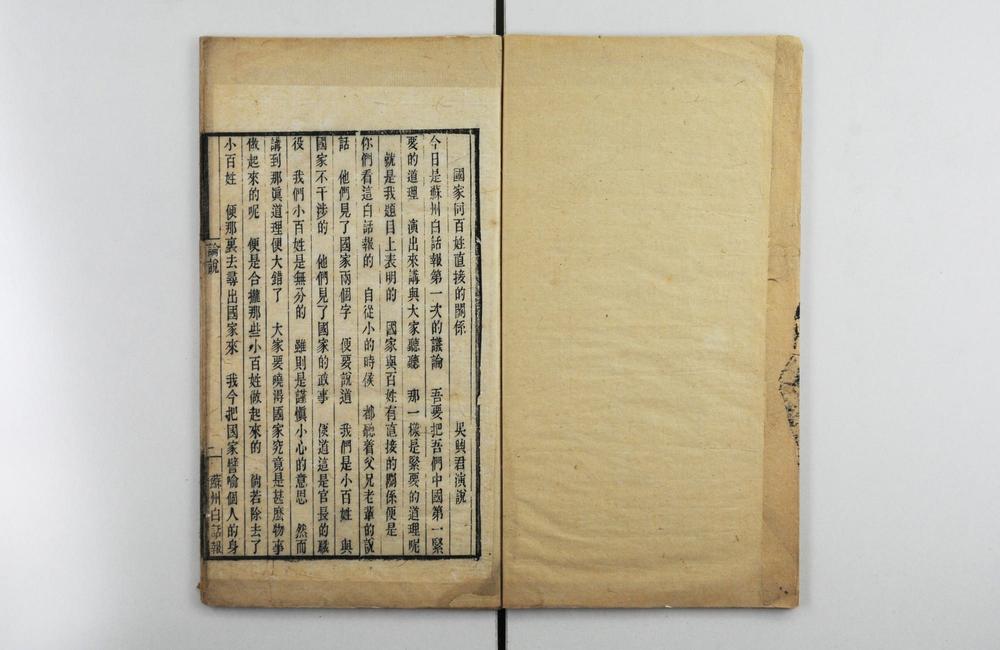 國家同百姓直接的關係 吳興君演說
今日是蘇州白話報第一次的議論 吾要把吾們中國第一緊
要的道理 演出來講與大家聽聽 那一樣是緊要的道理呢
就是我題目上表明的 國家與百姓有直接的關係便是
你們看這白話報的 自從小的時候 都聽着父兄老輩的說
話 他們見了國家兩個字 便要說道 我們是小百姓 與
國家不干涉的 他們見了國家的政事 便道這是官長的職
役 我們小百姓是無分的 雖則是謹愼小心的意思 然而
講到那眞道理便大錯了 大家要曉得國家究竟是甚麽物事
做起來的呢 便是合攏那些小百姓做起來的 倘若除去了
小百姓 便那裏去尋出國家來 我今把國家譬喻個人的身
論說 一 蘇州白話報